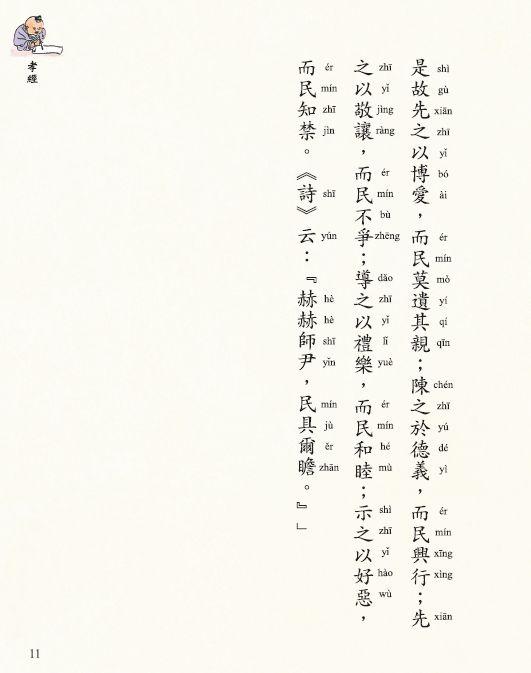 孝經
是故先之以博愛，而民莫遺其親；陳之於德義，而民興行；先
shì gù xiān zhī yǐ bó ài ér mín mǒ yí qí qīn chén zhī yú dé yì ér mín xīng xìng xiān
之以敬讓，而民不爭；導之以禮樂，而民和睦；示之以好惡，
zhī yǐ jìng ràng ér mín bù zhēng dǎo zhī yǐ lǐ yuè ér mín hé mù shì zhī yǐ hào wù
而民知禁。《詩》云：『赫赫師尹，民具爾瞻。』」
ér mín zhī jìn shī yún hè hè shī yǐn mín jù ěr zhān
11